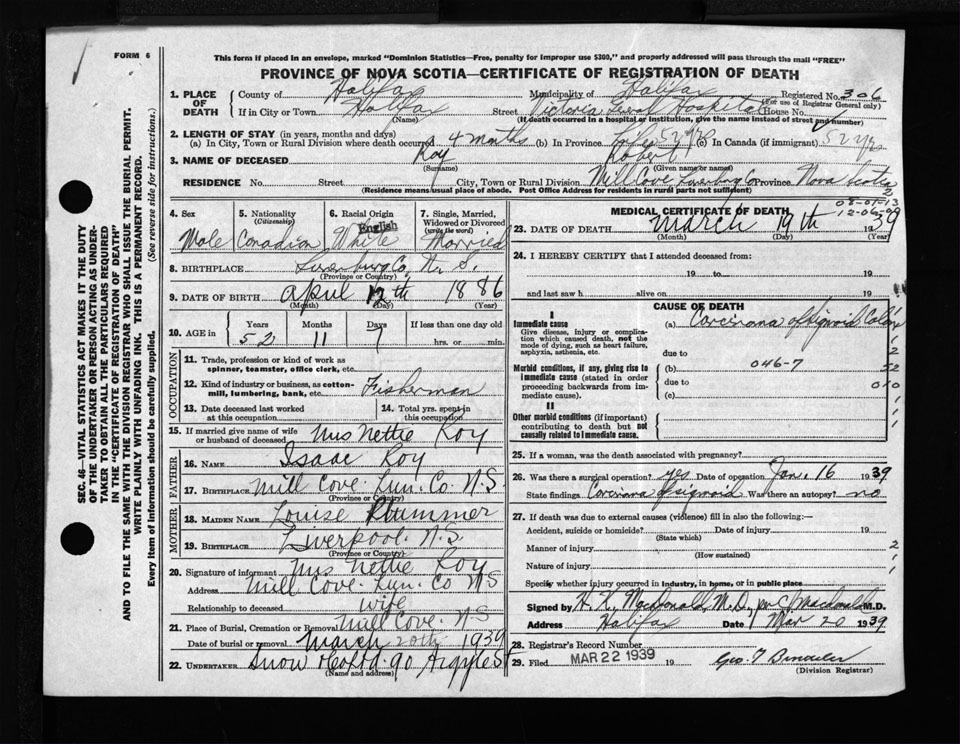 FORM 6
This form if placed in an envelope, marked "Dominion Statistics—Free, penalty for improper use $300," and properly addressed will pass through the mail "FREE"
PROVINCE OF NOVA SCOTIA—CERTIFICATE OF REGISTRATION OF DEATH
1. PLACE OF DEATH County of Halifax Municipality of Halifax Registered No. 306
(For use of Registrar General only)
If in City or Town Halifax Street Victoria Hospital House No.
(Name) (If death occurred in a hospital or institution, give the name instead of street and number)
2. LENGTH OF STAY (in years, months and days)
(a) In City, Town or Rural Division where death occurred 4 months (b) In Province Life 52 yrs (c) In Canada (if immigrant) 52 yrs
3. NAME OF DECEASED Roy Robert
(Surname) (Given name or names)
RESIDENCE No. Street City, Town or Rural Division Mill Cove Lunenburg Co Province Nova Scotia
(Residence means usual place of abode. Post Office Address for residents in rural parts not sufficient)
4. Sex 5. Nationality (Citizenship) 6. Racial Origin 7. Single, Married, Widowed or Divorced (write the word)
English
Male Canadian White Married
8. BIRTHPLACE Lunenburg Co, N. S.
(Province or Country)
9. DATE OF BIRTH April 12th 1886
(Month) (Day) (Year)
10. AGE in Years Months Days If less than one day old
52 11 7 hrs. or min.
OCCUPATION
11. Trade, profession or kind of work as spinner, teamster, office clerk, etc.
12. Kind of industry or business, as cotton-mill, lumbering, bank, etc. Fisherman
13. Date deceased last worked at this occupation 14. Total yrs. spent in this occupation
15. If married give name of wife or husband of deceased Mrs Nettie Roy
FATHER
16. NAME Isaac Roy
17. BIRTHPLACE Mill Cove Lun. Co. N.S
(Province or Country)
MOTHER
18. MAIDEN NAME Louise Plummer
19. BIRTHPLACE Liverpool N.S
(Province or Country)
20. Signature of informant Mrs Nettie Roy
Address Mill Cove Lun. Co NS
Relationship to deceased wife
21. Place of Burial, Cremation or Removal Mill Cove NS
Date of burial or removal March 20th 1939
22. UNDERTAKER Snow 90 Argyle St
(Name and address)
08-01-13
MEDICAL CERTIFICATE OF DEATH
23. DATE OF DEATH March 19th 1939
(Month) (Day)
24. I HEREBY CERTIFY that I attended deceased from:
19 to 19
and last saw h alive on 19
CAUSE OF DEATH
I
Immediate cause (a) Carcinoma of sigmoid Colon
Give disease, injury or complication which caused death, not the mode of dying, such as heart failure, asphyxia, asthenia, etc.
due to
(b) 046-7
Morbid conditions, if any, giving rise to immediate cause (stated in order proceeding backwards from immediate cause).
due to
(c)
II
Other morbid conditions (if important) contributing to death but not causally related to immediate cause.
25. If a woman, was the death associated with pregnancy?
26. Was there a surgical operation? yes Date of operation Jan. 16 1939
State findings Carcinoma of sigmoid Was there an autopsy? no
27. If death was due to external causes (violence) fill in also the following:—
Accident, suicide or homicide? Date of injury 19
(State which)
Manner of injury
(How sustained)
Nature of injury
Specify whether injury occurred in industry, in home, or in public place
Signed by H. K. MacDonald, M.D. per C Macdonald M.D.
Address Halifax Date Mar 20 1939
28. Registrar's Record Number
29. Filed MAR 22 1939 19
(Division Registrar)
SEC. 46—VITAL STATISTICS ACT MAKES IT THE DUTY
OF THE UNDERTAKER OR PERSON ACTING AS UNDER-
TAKER TO OBTAIN ALL THE PARTICULARS REQUIRED
IN THE "CERTIFICATE OF REGISTRATION OF DEATH" AND TO FILE THE SAME WITH THE DIVISION REGISTRAR WHO SHALL ISSUE THE BURIAL PERMIT.
WRITE PLAINLY WITH UNFADING INK. THIS IS A PERMANENT RECORD.
Every item of information should be carefully supplied. (See reverse side for instructions.)